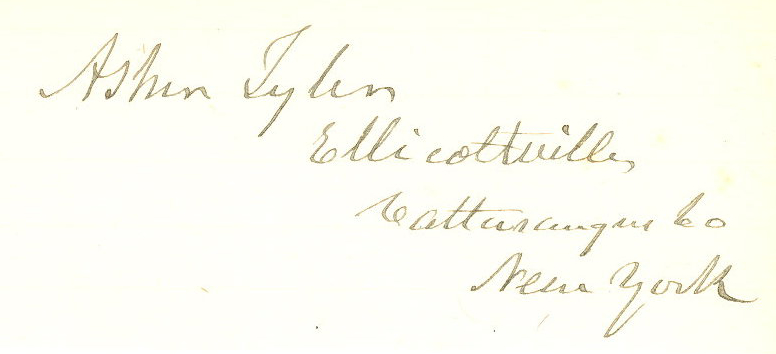 Asher Tyler
Ellicottville,
Cattaraugus Co
New York